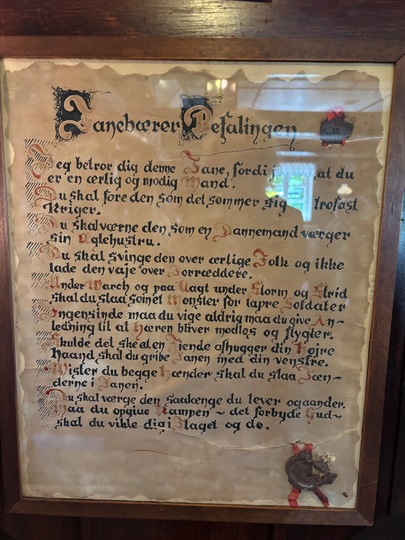 Fanebærer Befalingen
Jeg betror dig denne Fane, fordi j at du
er en ærlig og modig Mand.
Du skal føre den som det sømmer sig trofast
Kriger.
Du skal værne den som en Dannemand værger
sin Ægtehustru.
Du skal svinge den over ærlige Folk og ikke
lade den vaje over Forræddere.
Under March og paa Vagt under Storm og Strid
skal du staa som et Mønster for tapre Soldater
Ingensinde maa du vige aldrig maa du give An-
ledning til at Hæren bliver modløs og flygter.
Skulde det ske at en Fiende afhugger din Højre
Haand skal du gribe Fanen med din venstre.
Mister du begge Hænder skal du slaa Tæn-
derne i Fanen.
Du skal værge den saalænge du lever og aander.
Maa du opgive Kampen ~ det forbyde Gud ~
skal du vikle dig i Flaget og dø.